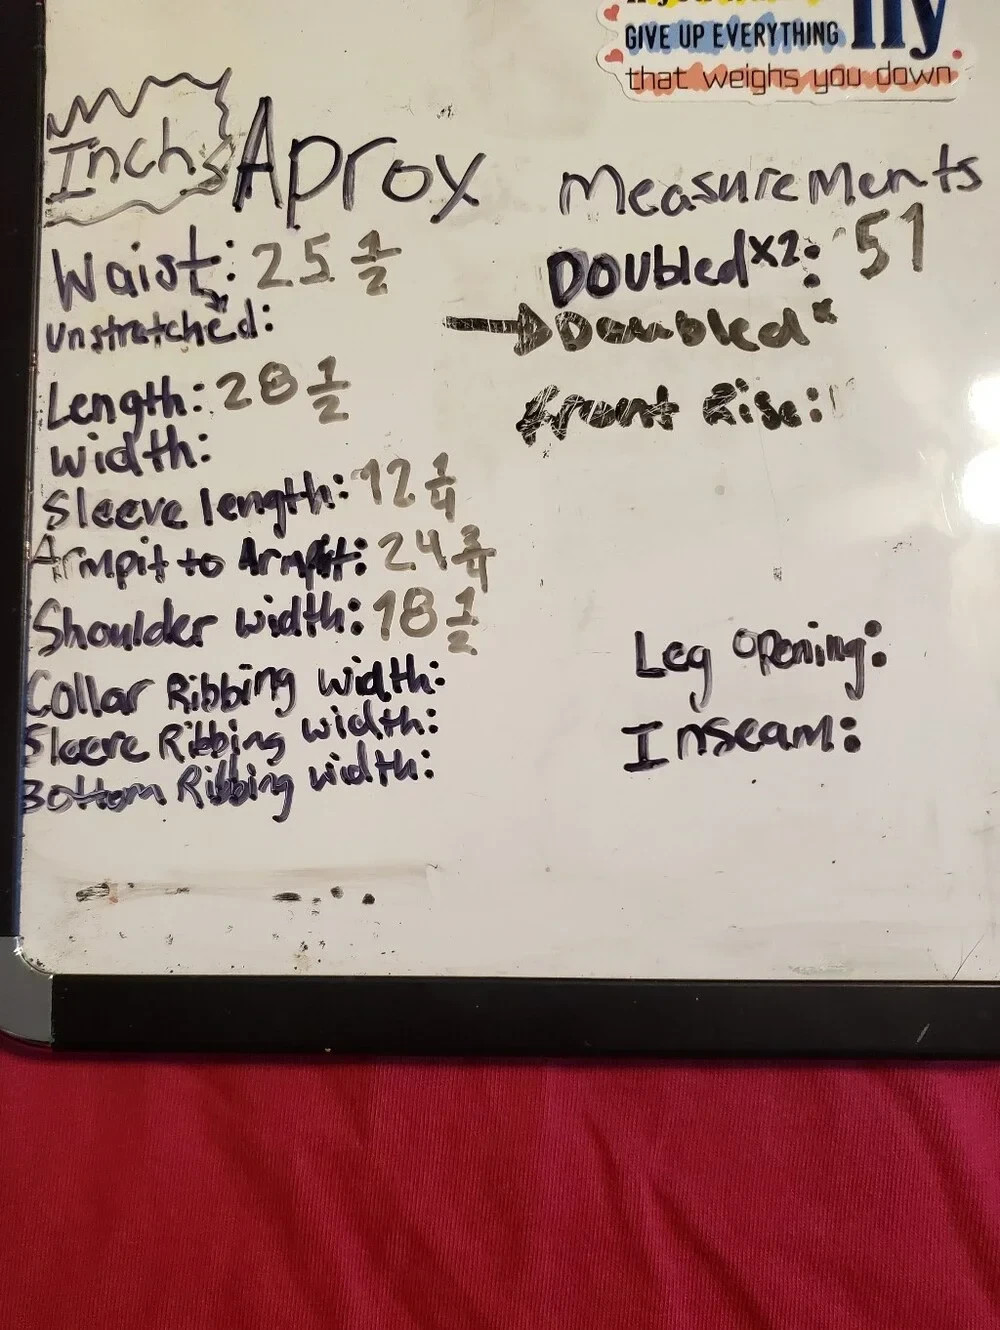 fly
GIVE UP EVERYTHING
that weighs you down
Inchs Aprox Measurements
Waist: 25 1/2 Doubled x2: 51
unstratched: Doubled x
Length: 28 1/2 front Rise:
width:
Sleeve length: 12 1/4
Armpit to Armpit: 24 3/4
Shoulder width: 18 1/2 Leg opening:
Collar Ribbing width:
Sleeve Ribbing width: Inseam:
Bottom Ribbing width: